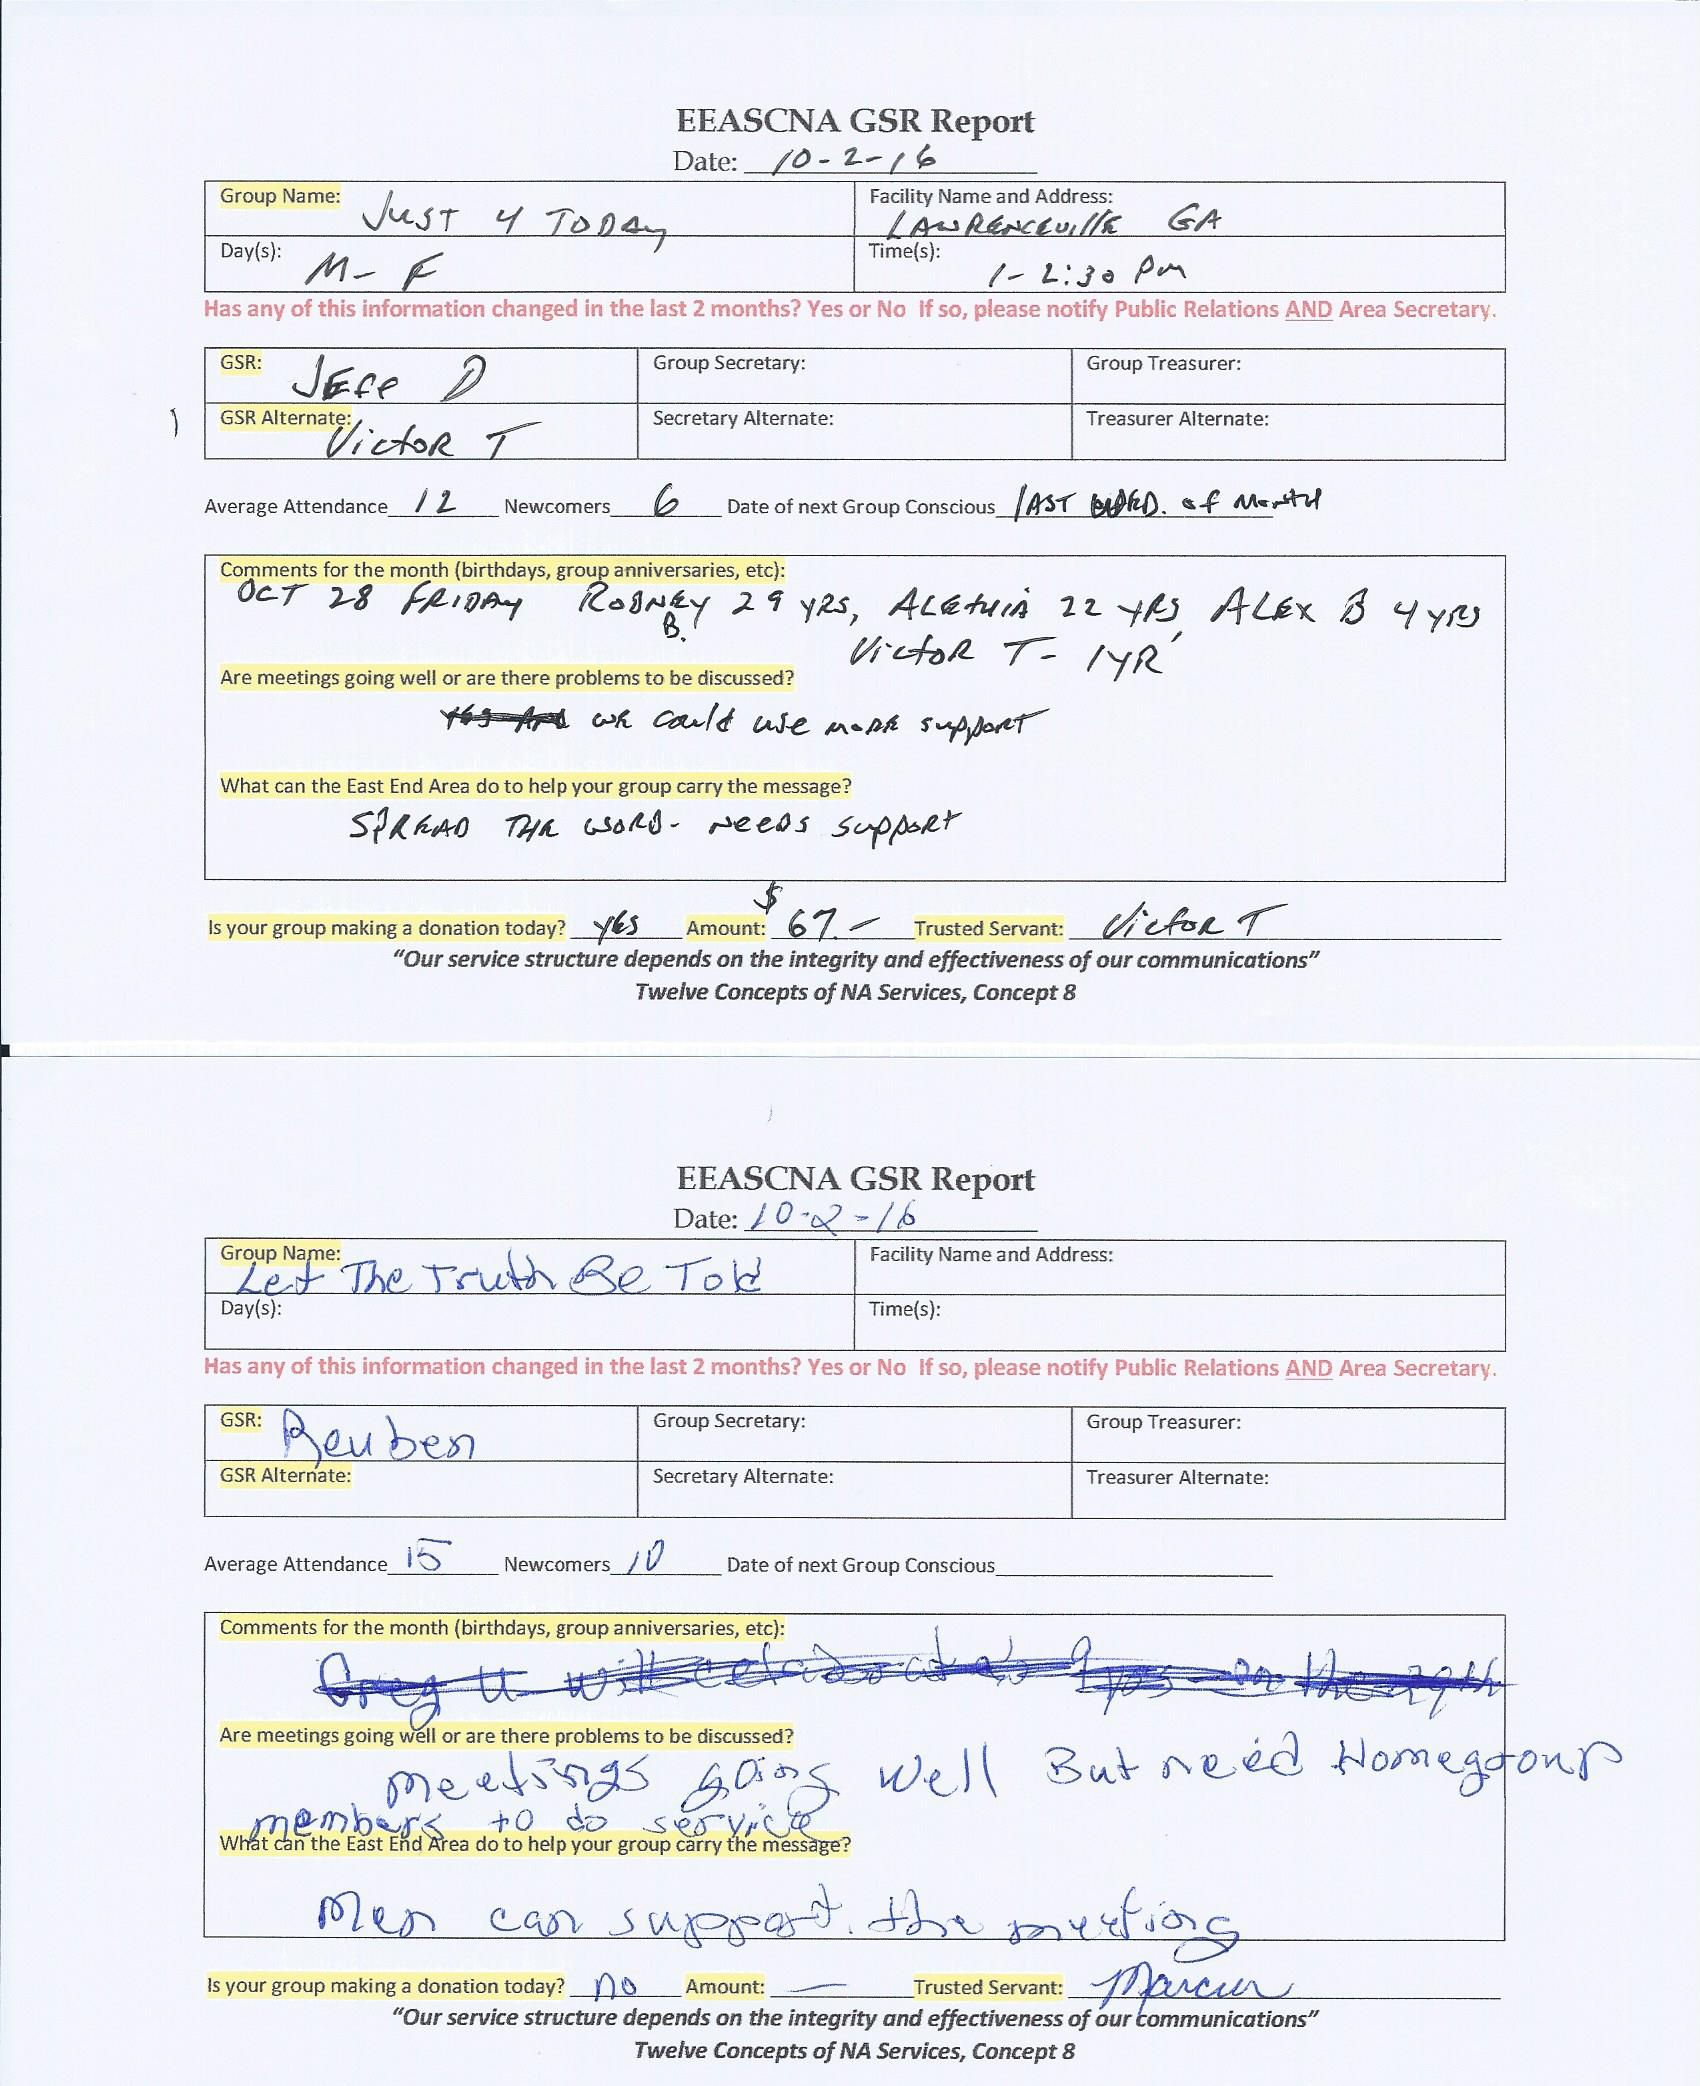 EEASCNA GSR Report
Date: 10-2-16
Group Name: JUST 4 TODAY
Facility Name and Address: LAWRENCEVILLE GA
Day(s): M- F
Time(s): 1-2:30 PM
Has any of this information changed in the last 2 months? Yes or No If so, please notify Public Relations AND Area Secretary.
GSR: JEFF D
Group Secretary:
Group Treasurer:
GSR Alternate: Victor T
Secretary Alternate:
Treasurer Alternate:
Average Attendance 12 Newcomers 6 Date of next Group Conscious LAST WED. of Month
Comments for the month (birthdays, group anniversaries, etc):
OCT 28 FRIDAY RODNEY B. 29 YRS, ALETHIA 22 YRS, ALEX B 4 YRS
Victor T- 1YR
Are meetings going well or are there problems to be discussed?
we could use more support
What can the East End Area do to help your group carry the message?
SPREAD THE WORD- NEEDS support
Is your group making a donation today? yes Amount: $67.- Trusted Servant: Victor T
“Our service structure depends on the integrity and effectiveness of our communications”
Twelve Concepts of NA Services, Concept 8
EEASCNA GSR Report
Date: 10-2-16
Group Name: Let The Truth Be Told
Facility Name and Address:
Day(s):
Time(s):
Has any of this information changed in the last 2 months? Yes or No If so, please notify Public Relations AND Area Secretary.
GSR: Reuben
Group Secretary:
Group Treasurer:
GSR Alternate:
Secretary Alternate:
Treasurer Alternate:
Average Attendance 15 Newcomers 10 Date of next Group Conscious
Comments for the month (birthdays, group anniversaries, etc):
Greg U will
Are meetings going well or are there problems to be discussed?
meetings going well But need Homegroup
members to do service
What can the East End Area do to help your group carry the message?
Men can support the meeting
Is your group making a donation today? no Amount: — Trusted Servant: Marcus
“Our service structure depends on the integrity and effectiveness of our communications”
Twelve Concepts of NA Services, Concept 8